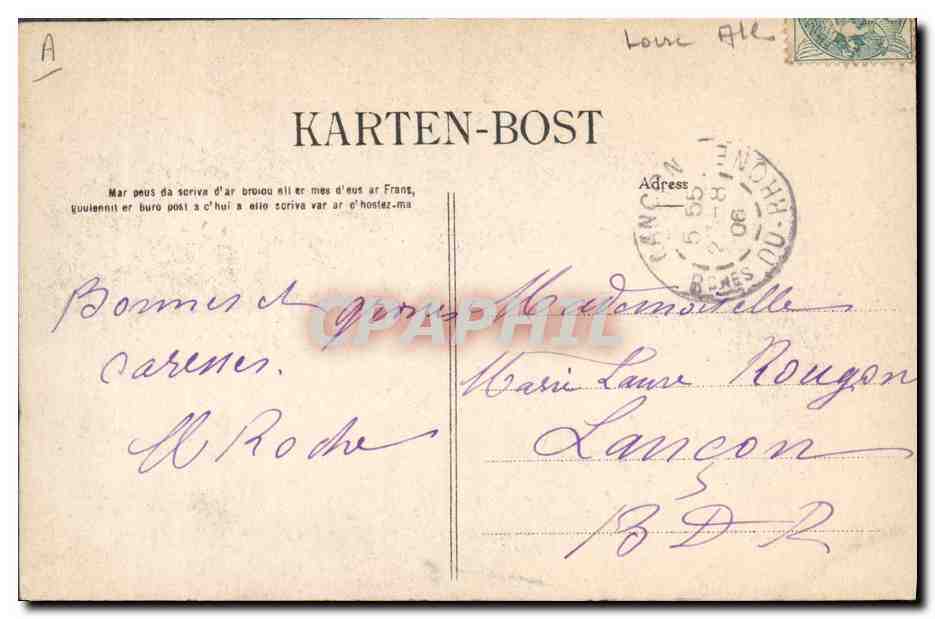 A
Loire Atl
KARTEN-BOST
Mar peus da scriva d'ar broiou all er mes d'eus ar Frans,
goulennit er buro post a c'hui a ello scriva var ar c'hostez-ma
Adress
LANCON
BCHES-DU-RHONE
5 55
2-8
06
CPAPHIL
Bonnes et grosses
caresses.
M Roche
Mademoiselle
Marie Laure Rougon
Lançon
B D R